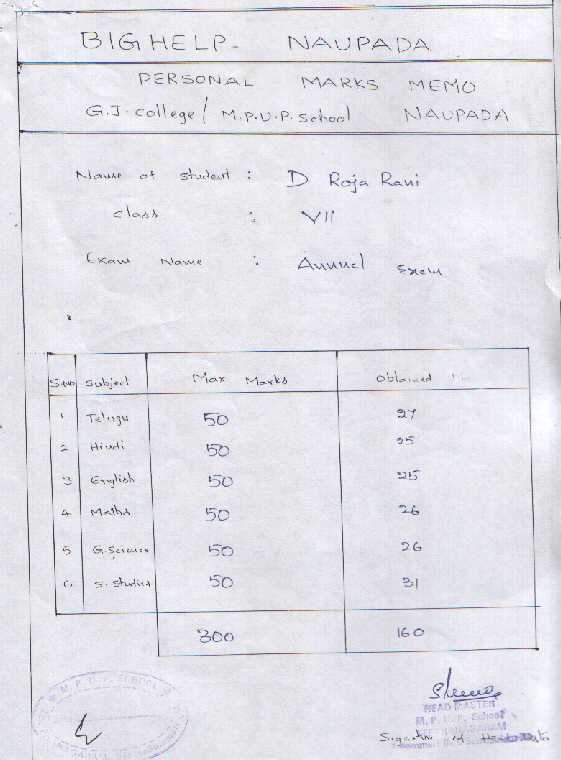 BIGHELP- NAUPADA
PERSONAL MARKS MEMO
G.J. College / M.P.U.P. School NAUPADA
Name of Student : D Roja Rani
Class : VII
Exam Name : Annual Exam
S.no Subject Max Marks Obtained
1 Telugu 50 27
2 Hindi 50 25
3 English 50 25
4 Maths 50 26
5 G. Science 50 26
6. S. Studies 50 31
300 160
M. P. U. P. SCHOOL
HEAD MASTER
M. P. U. P. School
Signature of